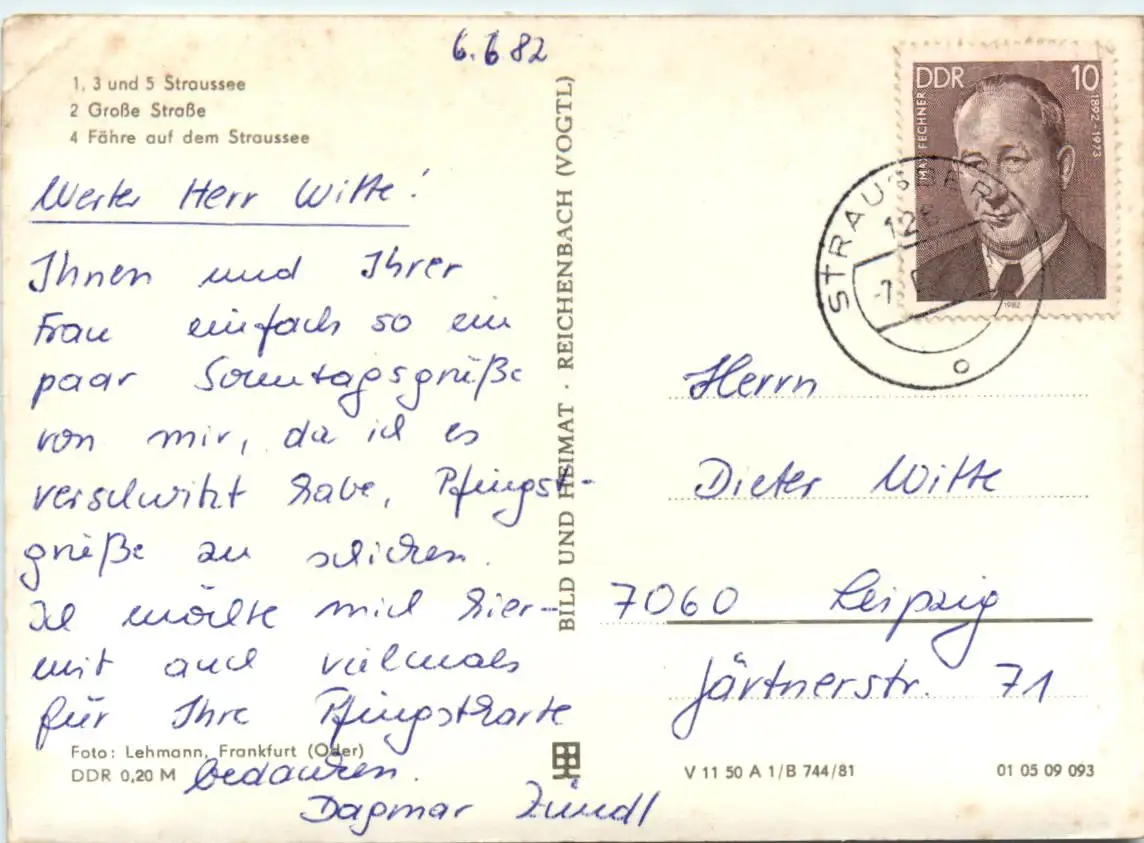 6.6 82
1, 3 und 5 Straussee
2 Große Straße
4 Fähre auf dem Straussee
Werter Herr Witte!
Ihnen und Ihrer
Frau einfach so ein
paar Sonntagsgrüße
von mir, da ich es
verschwitzt habe, Pfingst-
grüße zu schicken.
Ich möchte mich hier-
mit auch vielmals
für Ihre Pfingstkarte
bedanken.
Dagmar Zündl
Foto: Lehmann, Frankfurt (Oder)
DDR 0,20 M
BILD UND HEIMAT · REICHENBACH (VOGTL)
DDR 10
MAX FECHNER
1892-1973
1982
STRAUSBER
126
-7.
Herrn
Dieter Witte
7060 Leipzig
Gärtnerstr. 71
V 11 50 A 1/B 744/81
01 05 09 093